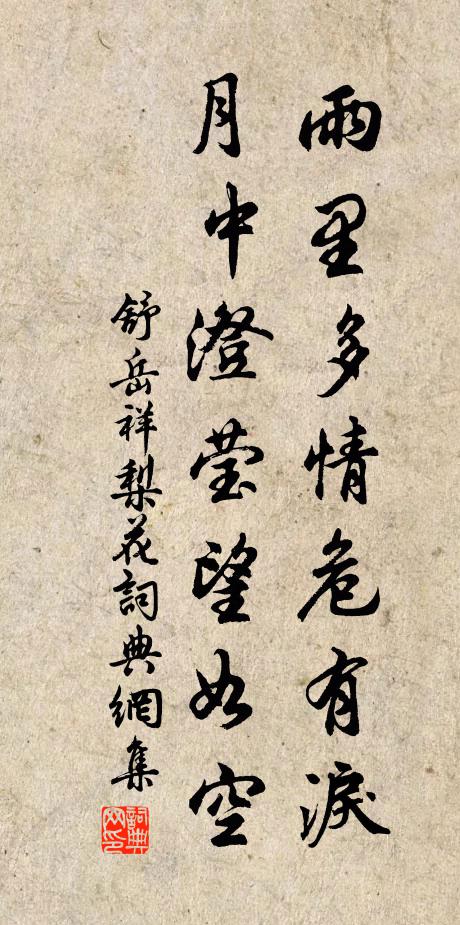 雨里多情危有淚
月中澄莹望如空
舒岳祥梨花詞典網集
詞典网印